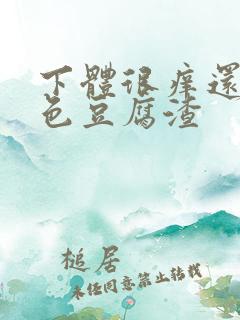 下體很痒還
色豆腐渣
槌居
未经同意禁止转载